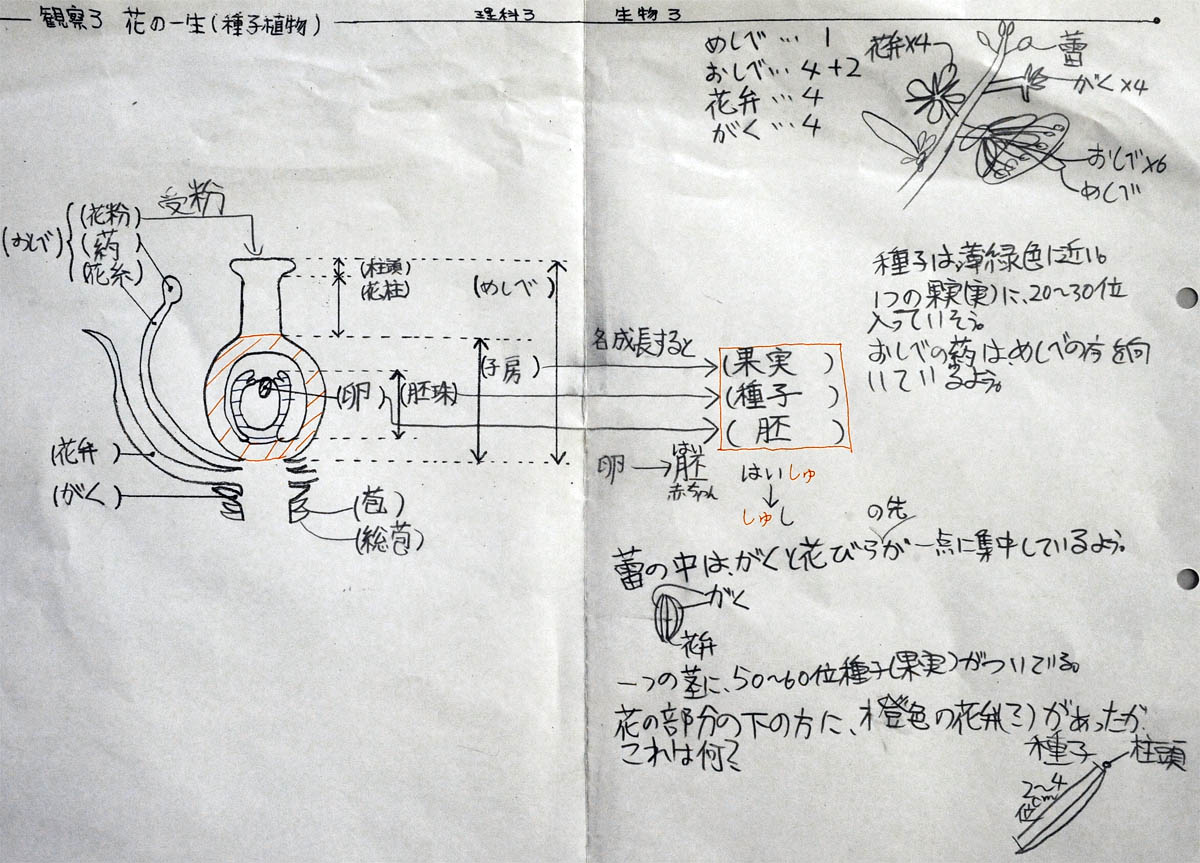 観察3 花の一生(種子植物)
理科3 生物3
めしべ…1
おしべ…4+2
花弁…4
がく…4
花弁×4
蕾
がく×4
おしべ×6
めしべ
受粉
(おしべ)
(花粉)
(葯)
(花糸)
(柱頭)
(花柱)
(めしべ)
(子房)
(卵)
(胚珠)
(花弁)
(がく)
(苞)
(総苞)
名成長すると
(果実)
(種子)
(胚)
卵→胚
はい
赤ちゃん
はいしゅ
↓
しゅし
種子は、薄緑色に近い。
1つの果実(実)に、20〜30位
入っていそう。
おしべの葯は、めしべの方を向
いているよう。
の先
蕾の中は、がくと花びらが一点に集中しているよう。
がく
花弁
一つの茎に、50〜60位種子(果実)がついている。
花の部分の下の方に、橙色の花弁(?)があったが、
これは何?
種子
柱頭
2〜4
cm
位